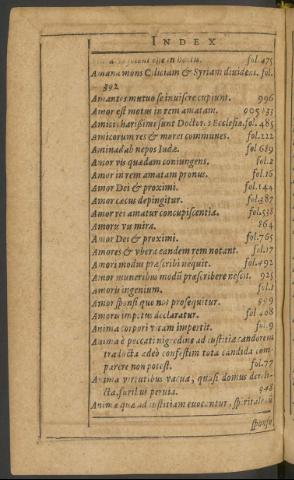 INDEX
fol. 475
Amana mons Ciliciam & Syriam diuidens. fol.
392
Amantes mutuo se inuisere cupiunt. 996
Amor est motus in rem amatam.
Amici charissimi sunt Doctores Ecclesiæ. fol. 485
Amicorum res & mores communes. fol. 222
Aminadab nepos Iudæ. fol 689
Amor vis quædam coniungens. fol. 2
Amor in rem amatam pronus. fol. 16
Amor Dei & proximi. fol. 144
Amor cæcus depingitur. fol. 387
Amor rei amatur concupiscentia. fol. 538
Amoris vis mira. 864
Amor Dei & proximi. fol. 765
Amores & vbera eandem rem notant. fol. 17
Amori modus præscribi nequit. fol. 492
Amor muneribus modū præscribere nescit. 925
Amoris ingenium. fol. 1
Amor sponsi quo nos prosequitur. 859
Amoris impetus declaratur. fol 408
Anima corpori vitam impertit. fol. 9
Anima è peccati nigredine ad iustitiæ candorem
traducta adeò confestim tota candida com-
parere non potest. fol. 77
Anima virtutibus vacua, quasi domus dereli-
cta, furibus peruia. 948
Animæ quæ ad iustitiam euocantur, spiritalem
sponso